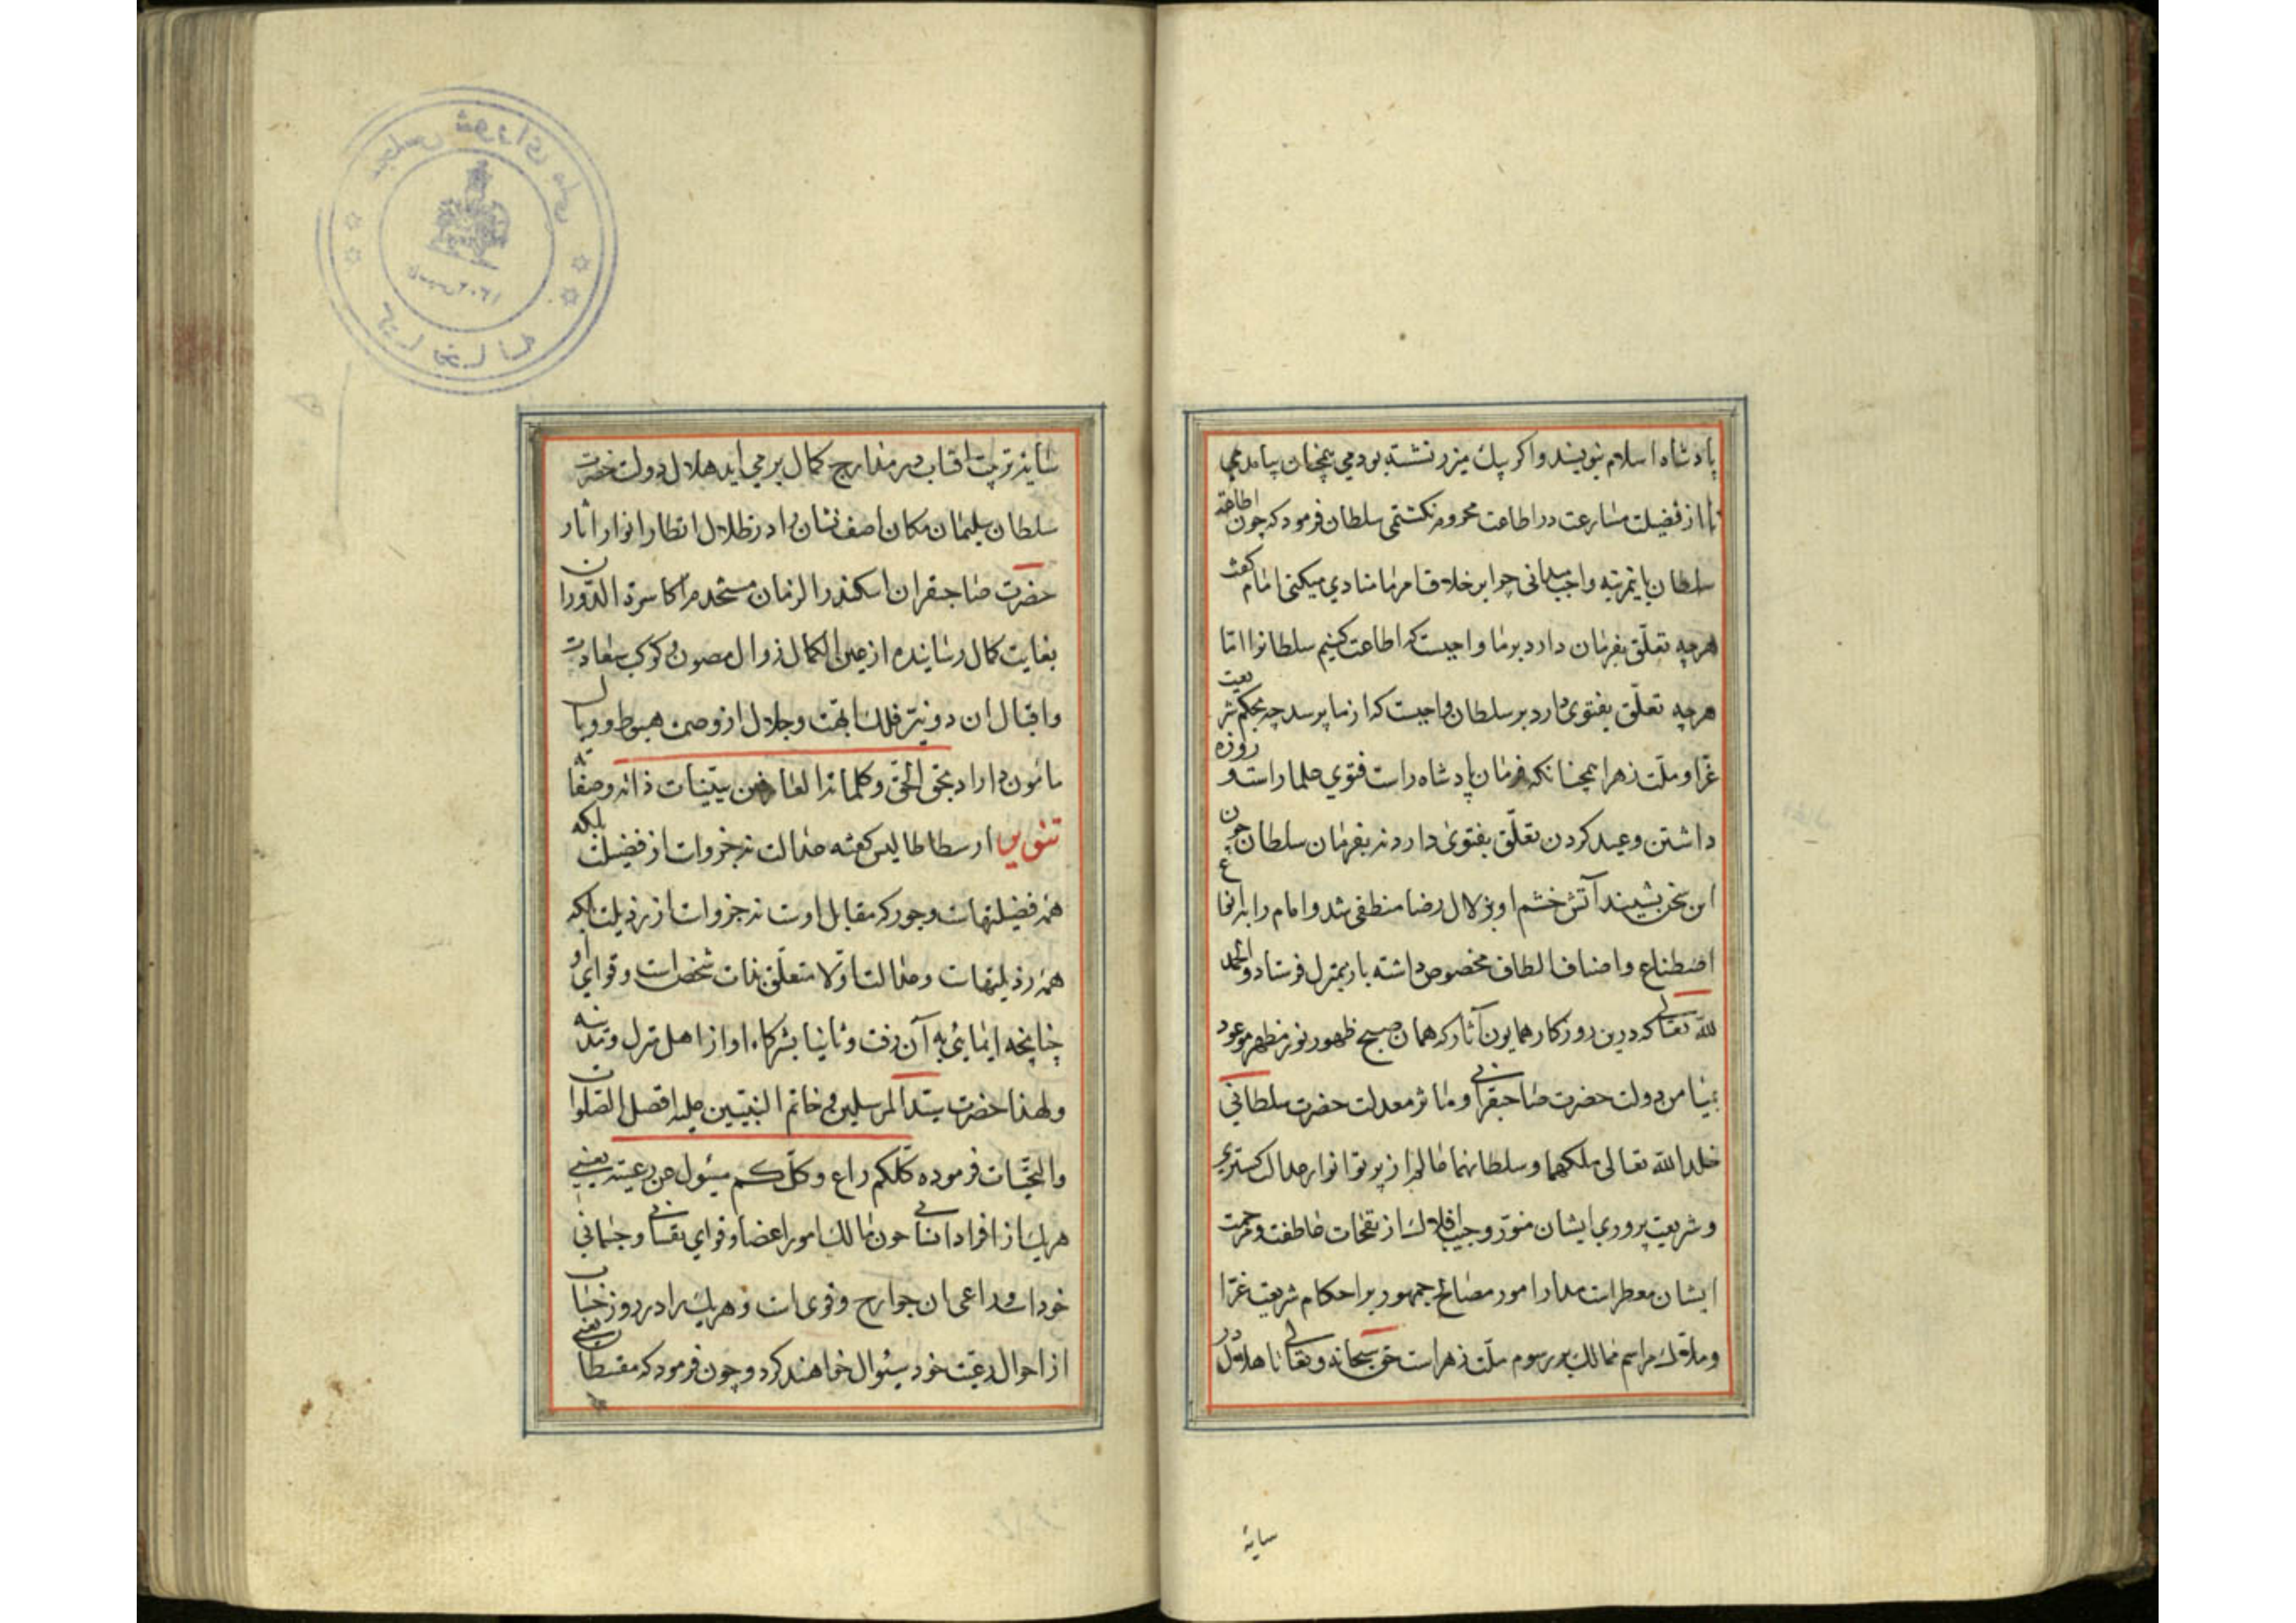 پادشاه اسلام بنویسند و اکر پیک میزر نشسته بودمی همچنان بیامدمی
تا از فضیلت مسارعت در اطاعت محروم نکشتمی سلطان فرمود که چون اطاعة
سلطان باینمرتبه واجب میدانی چرا بر خلاف امر ما منادی میکنی امام کفت
هرچه تعلّق بفرمان دارد بر ما واجبست که اطاعت کنیم سلطانرا امّا
هرچه تعلّق بفتوی دارد بر سلطان واجبست که از ما پرسد چه بحکم شریعت
غرّا و ملّت زهرا همچنانکه فرمان پادشاه راست فتوی علما راست و روزه
داشتن و عید کردن تعلّق بفتوی دارد نه بفرمان سلطان چون
این سخن بشنید آتش خشم او بزلال رضا منطفی شد و امام را بانواع
اصطناع و اصناف الطاف مخصوص داشته باز بمنزل فرستاد و الحمد
لله تعالی که درین روزکار همایون آثار که همان صبح ظهور نور مظهر موعود
بمیامن دولت حضرت صاحبقرانی و مآثر معدلت حضرت سلطانی
خلد الله تعالی ملکهما و سلطانهما عالم از پرتو انوار عدالت کستری
و شریعت پروری ایشان منوّر و جیب افلاک از نفحات عاطفت و مرحمت
ایشان معطر است مدار امور مصالح جمهور بر احکام شریعت غرّا
و ملاک مراسم ممالک بر رسوم ملّت زهراست حق سبحانه و تعالی تا هلال در
سایهٔ
سایهٔ تربیت آفتاب در مدارج کمال برمی آید هلال دولت حضرت
سلطان سلیمان مکان آصف نشان را در ظلال انظار انوار آثار
حضرت صاحبقران اسکندر الزمان مستخدم اکاسرة الدّوران
بغایت کمال رسانیده از عین الکمال زوال مصون و کوکب سعادت
و اقبال آن دو نیّر فلک ابّهت و جلال از وصمت هبوط و وبال
مأمون داراد بحق الحقّ و کلماته العا من بیّنات ذاته و صفاته
تنویر ارسطاطالیس کفته عدالت نه جزو است از فضیلت بلکه
همه فضیلتهاست و جور که مقابل اوست نه جزو است از رذیلت بلکه
همه رذیلتهاست و عدالت اوّلا متعلّق بذات شخص است و قوای او
چنانچه ایمایی به آن رفت و ثانیا بشرکاء او از اهل منزل و مدینه
و لهذا حضرت سیّد المرسلین و خاتم النبیّین علیه افضل الصّلوات
و التحیّات فرموده کلّکم راع و کلّکم مسئول عن رعیّته یعنی
هریک از افراد انسانی چون مالک امور اعضا و قوای نفسانی و جسمانی
خود است و راعی آن جوارح و قوی است و هریک را در روز حساب
از احوال رعیّت خود سئوال خواهند کرد و چون فرمود که مقسطان یعنی